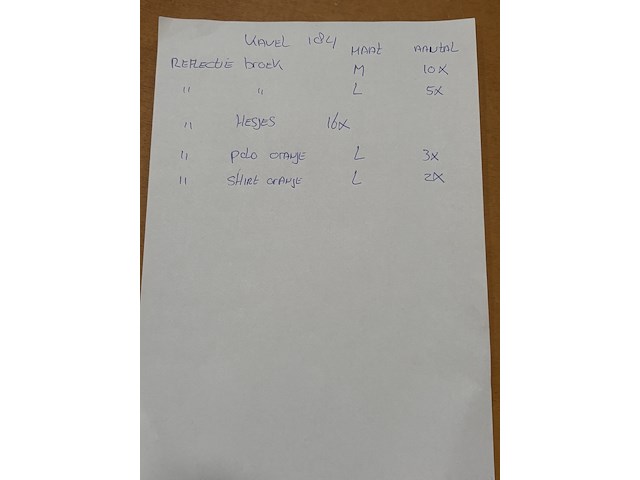 KAVEL 184 MAAT AANTAL
REFLECTIE broek M 10X
" " L 5X
" HESJES 16X
" polo oranje L 3x
" SHIRT oranje L 2X